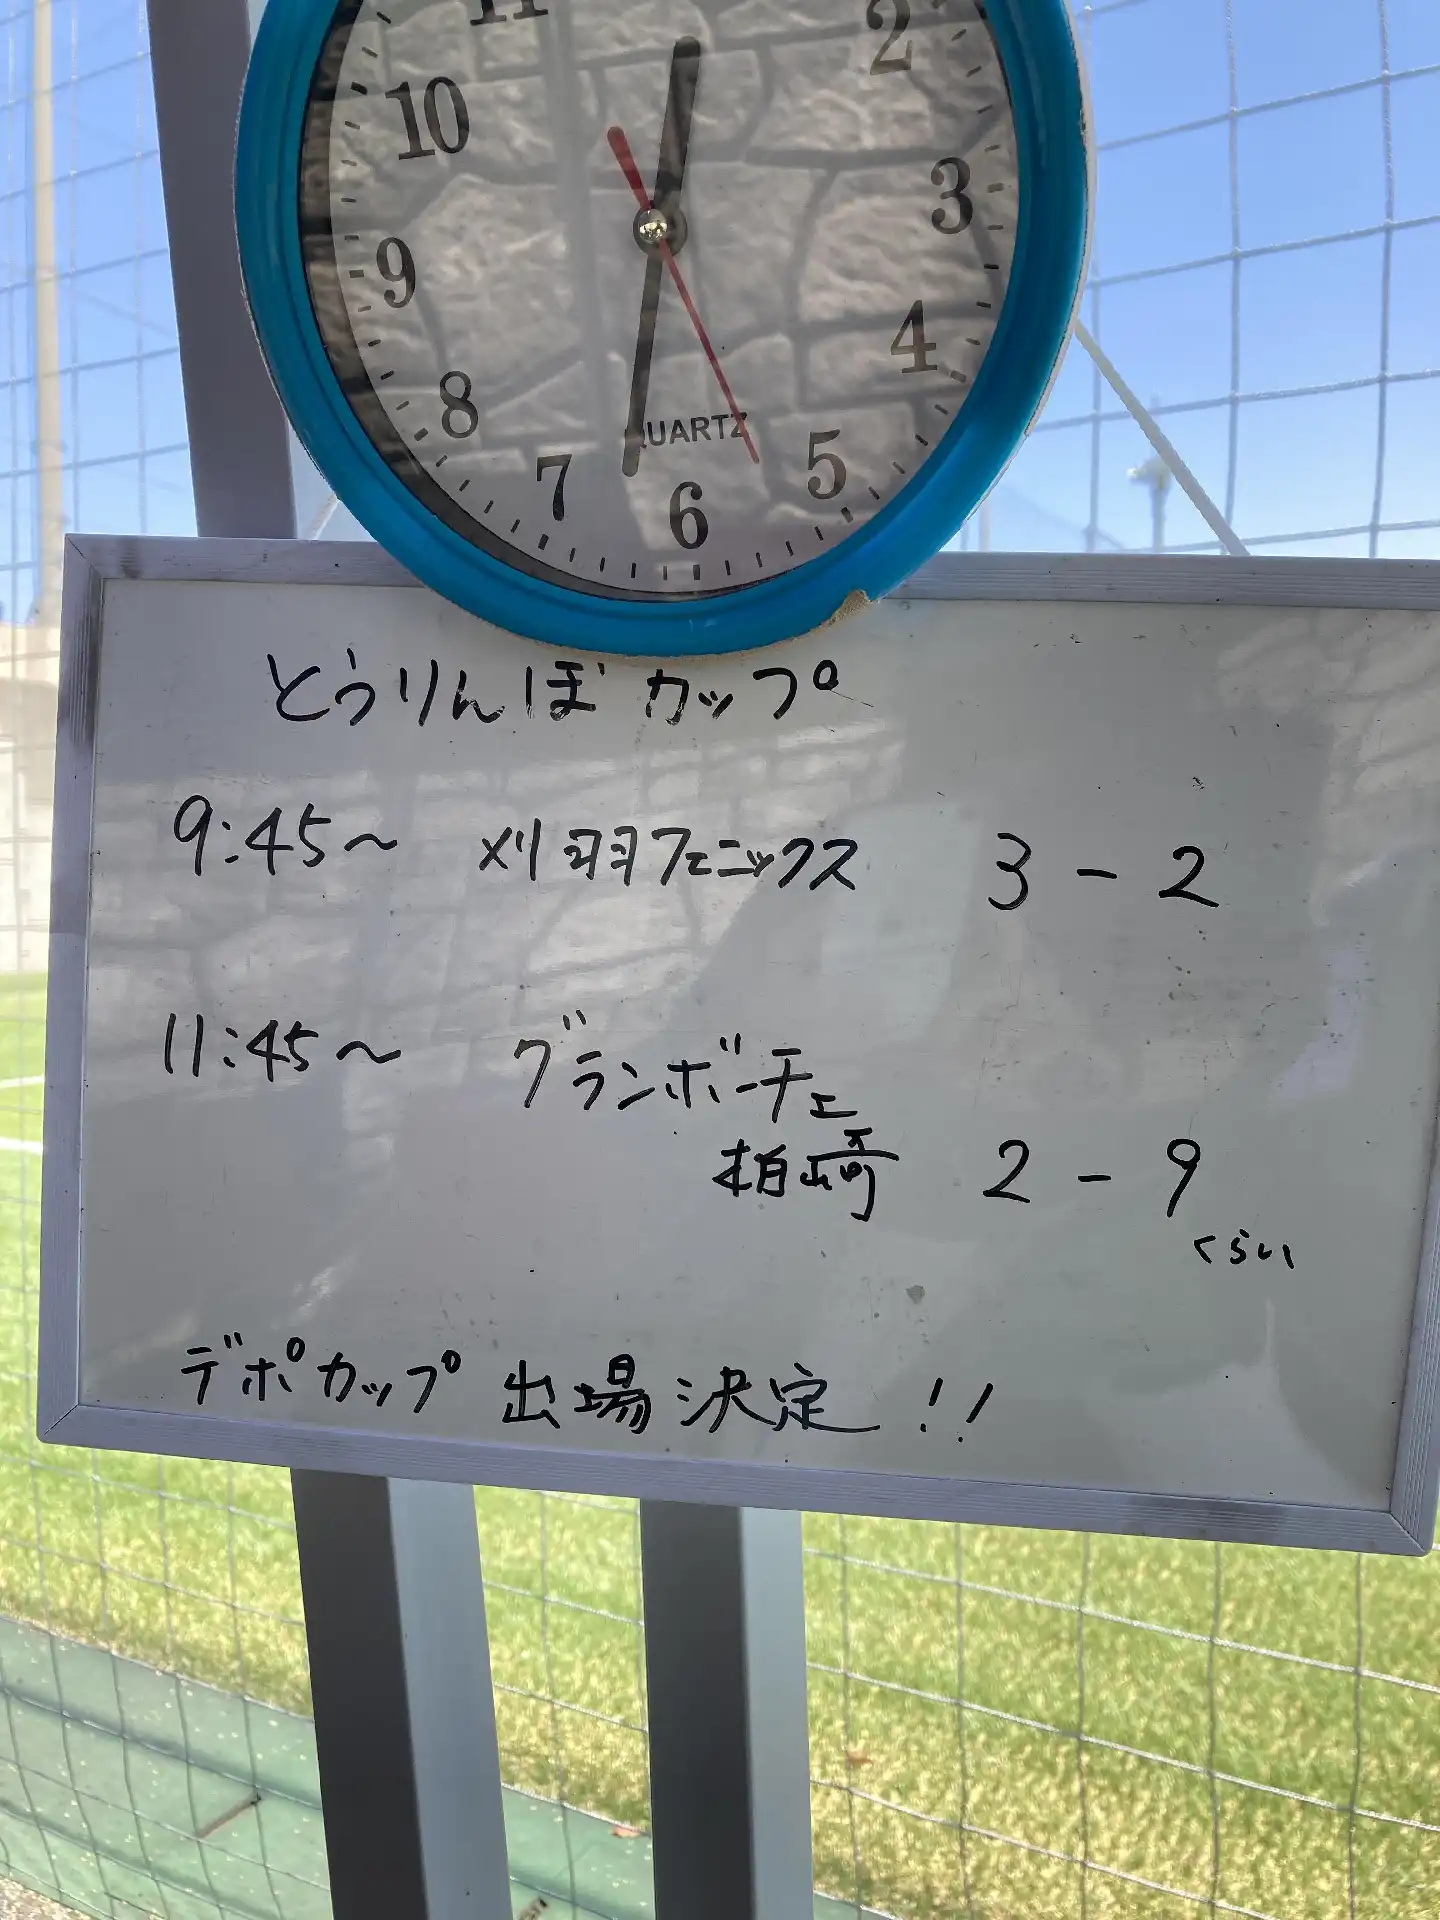 11
2
10
3
9
4
8
QUARTZ
7
5
6
とうりんぼカップ
9:45～ 刈羽フェニックス 3-2
11:45～ グランボーチェ
柏崎 2-9
くらい
デポカップ 出場決定!!